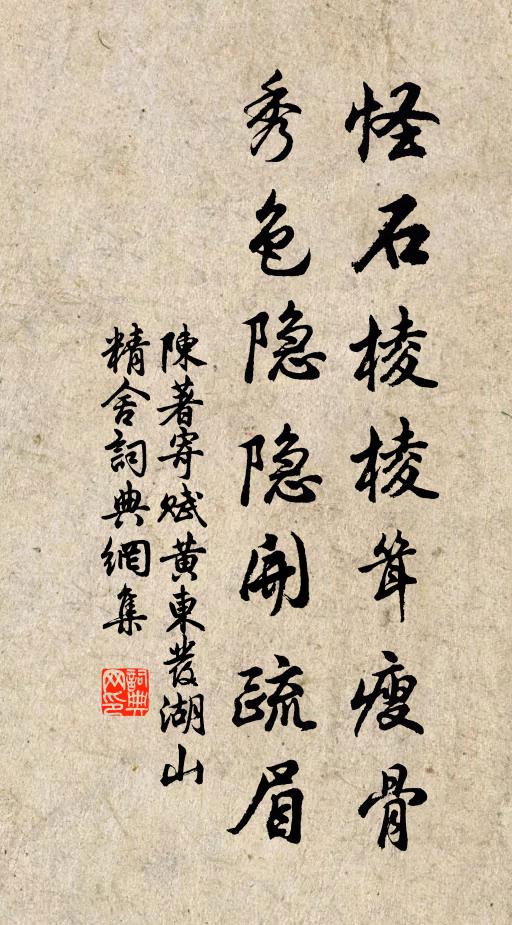 怪石棱棱耸瘦骨
秀色隐隐開疏眉
陳著寄赋黄東發湖山
精舍詞典網集
詞典网印